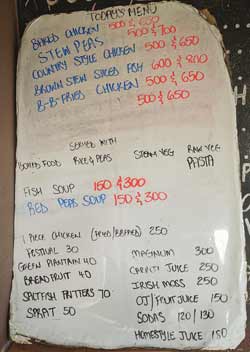 TODAY'S MENU
BAKED CHICKEN 500 & 650
STEW PEAS 500 & 700
COUNTRY STYLE CHICKEN 500 & 650
BROWN STEW SLICED FISH 600 & 800
B-B-FRIED CHICKEN 500 & 650
500 & 650
SERVED WITH
BOILED FOOD RICE & PEAS STEAM VEG RAW VEG
PASTA
FISH SOUP 150 & 300
RED PEAS SOUP 150 & 300
1 PIECE CHICKEN (FRIED/BAKED) 250
FESTIVAL 30
GREEN PLANTAIN 40
BREADFRUIT 40
SALTFISH FRITTERS 70
SPRAT 50
MAGNUM 300
CARROT JUICE 250
IRISH MOSS 250
OJ/FRUIT JUICE 150
SODAS 120/130
HOMESTYLE JUICE 150